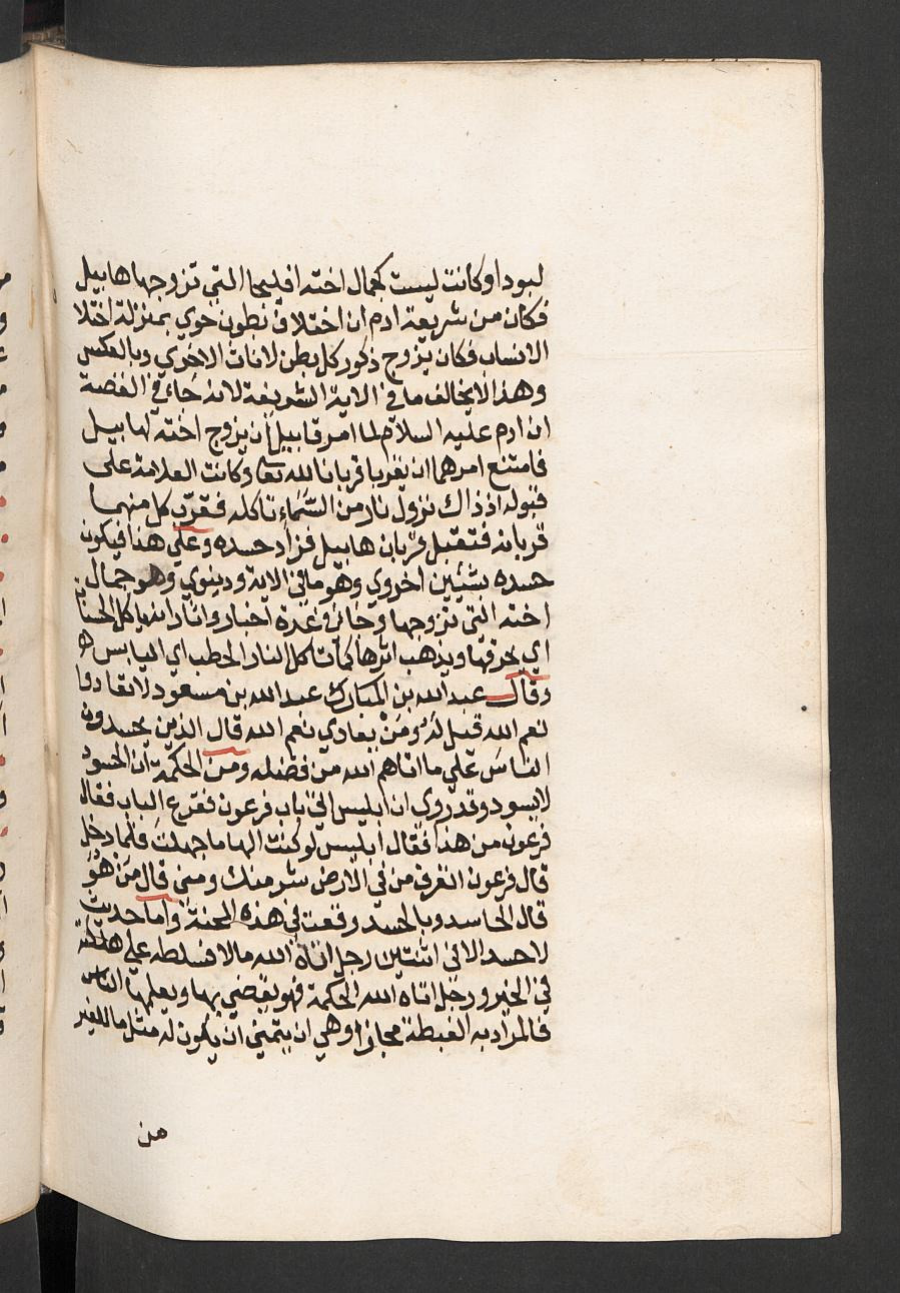 لبودا وكانت ليست كجمال اخته اقليما التي تزوجها هابيل
فكان من شريعة ادم ان اختلاف بطون حوي بمنزلة اختلا
الانساب فكان يزوج ذكور كل بطن لاناث الاخري وبالعكس
وهذا لا يخالف ما في الاية الشريفة لانه جاء في القصة
ان ادم عليه السلام لما امر قابيل ان يزوج اخته لهابيل
فامتنع امرهما ان يقربا قربانا لله تعا وكانت العلامة على
قبوله اذ ذاك نزول نار من السماء تاكله فقرب كل منهما
قربانه فتقبل قربان هابيل فزاد حسده وعلي هذا فيكون
حسده بشيئين اخروي وهو ما في الاية ودينوي وهو جمال
اخته التي تزوجها وجائز في عدة اخبار واثار انه ياكل الحسنا
اي يحرقها ويذهب اثرها كما تاكل النار الحطب اي اليابس
وقال عبد الله بن المبارك عبد الله بن مسعود لا تعادوا
نعم الله قيل له ومن يعادي نعم الله قال الذين يحسدون
الناس علي ما اتاهم الله من فضله ومن الحكمة ان الحسود
لا يسود وقد روي ان ابليس اتي باب فرعون فقرع الباب فقال
فرعون من هذا فقال ابليس لو كنت الها ما جهلت فلما دخل
قال فرعون اتعرف من في الارض شر منك ومني قال من هو
قال الحاسد وبالحسد وقعت في هذه المحنة واما حديث
لا حسد الا في اثنتين رجل اتاه الله مالا فسلطه علي هلكته
في الخير ورجل اتاه الله الحكمة فهو يقضي بها ويعلمها الناس
فالمراد به الغبطة مجازا وهي ان يتمني ان يكون له مثل ما للغير
من